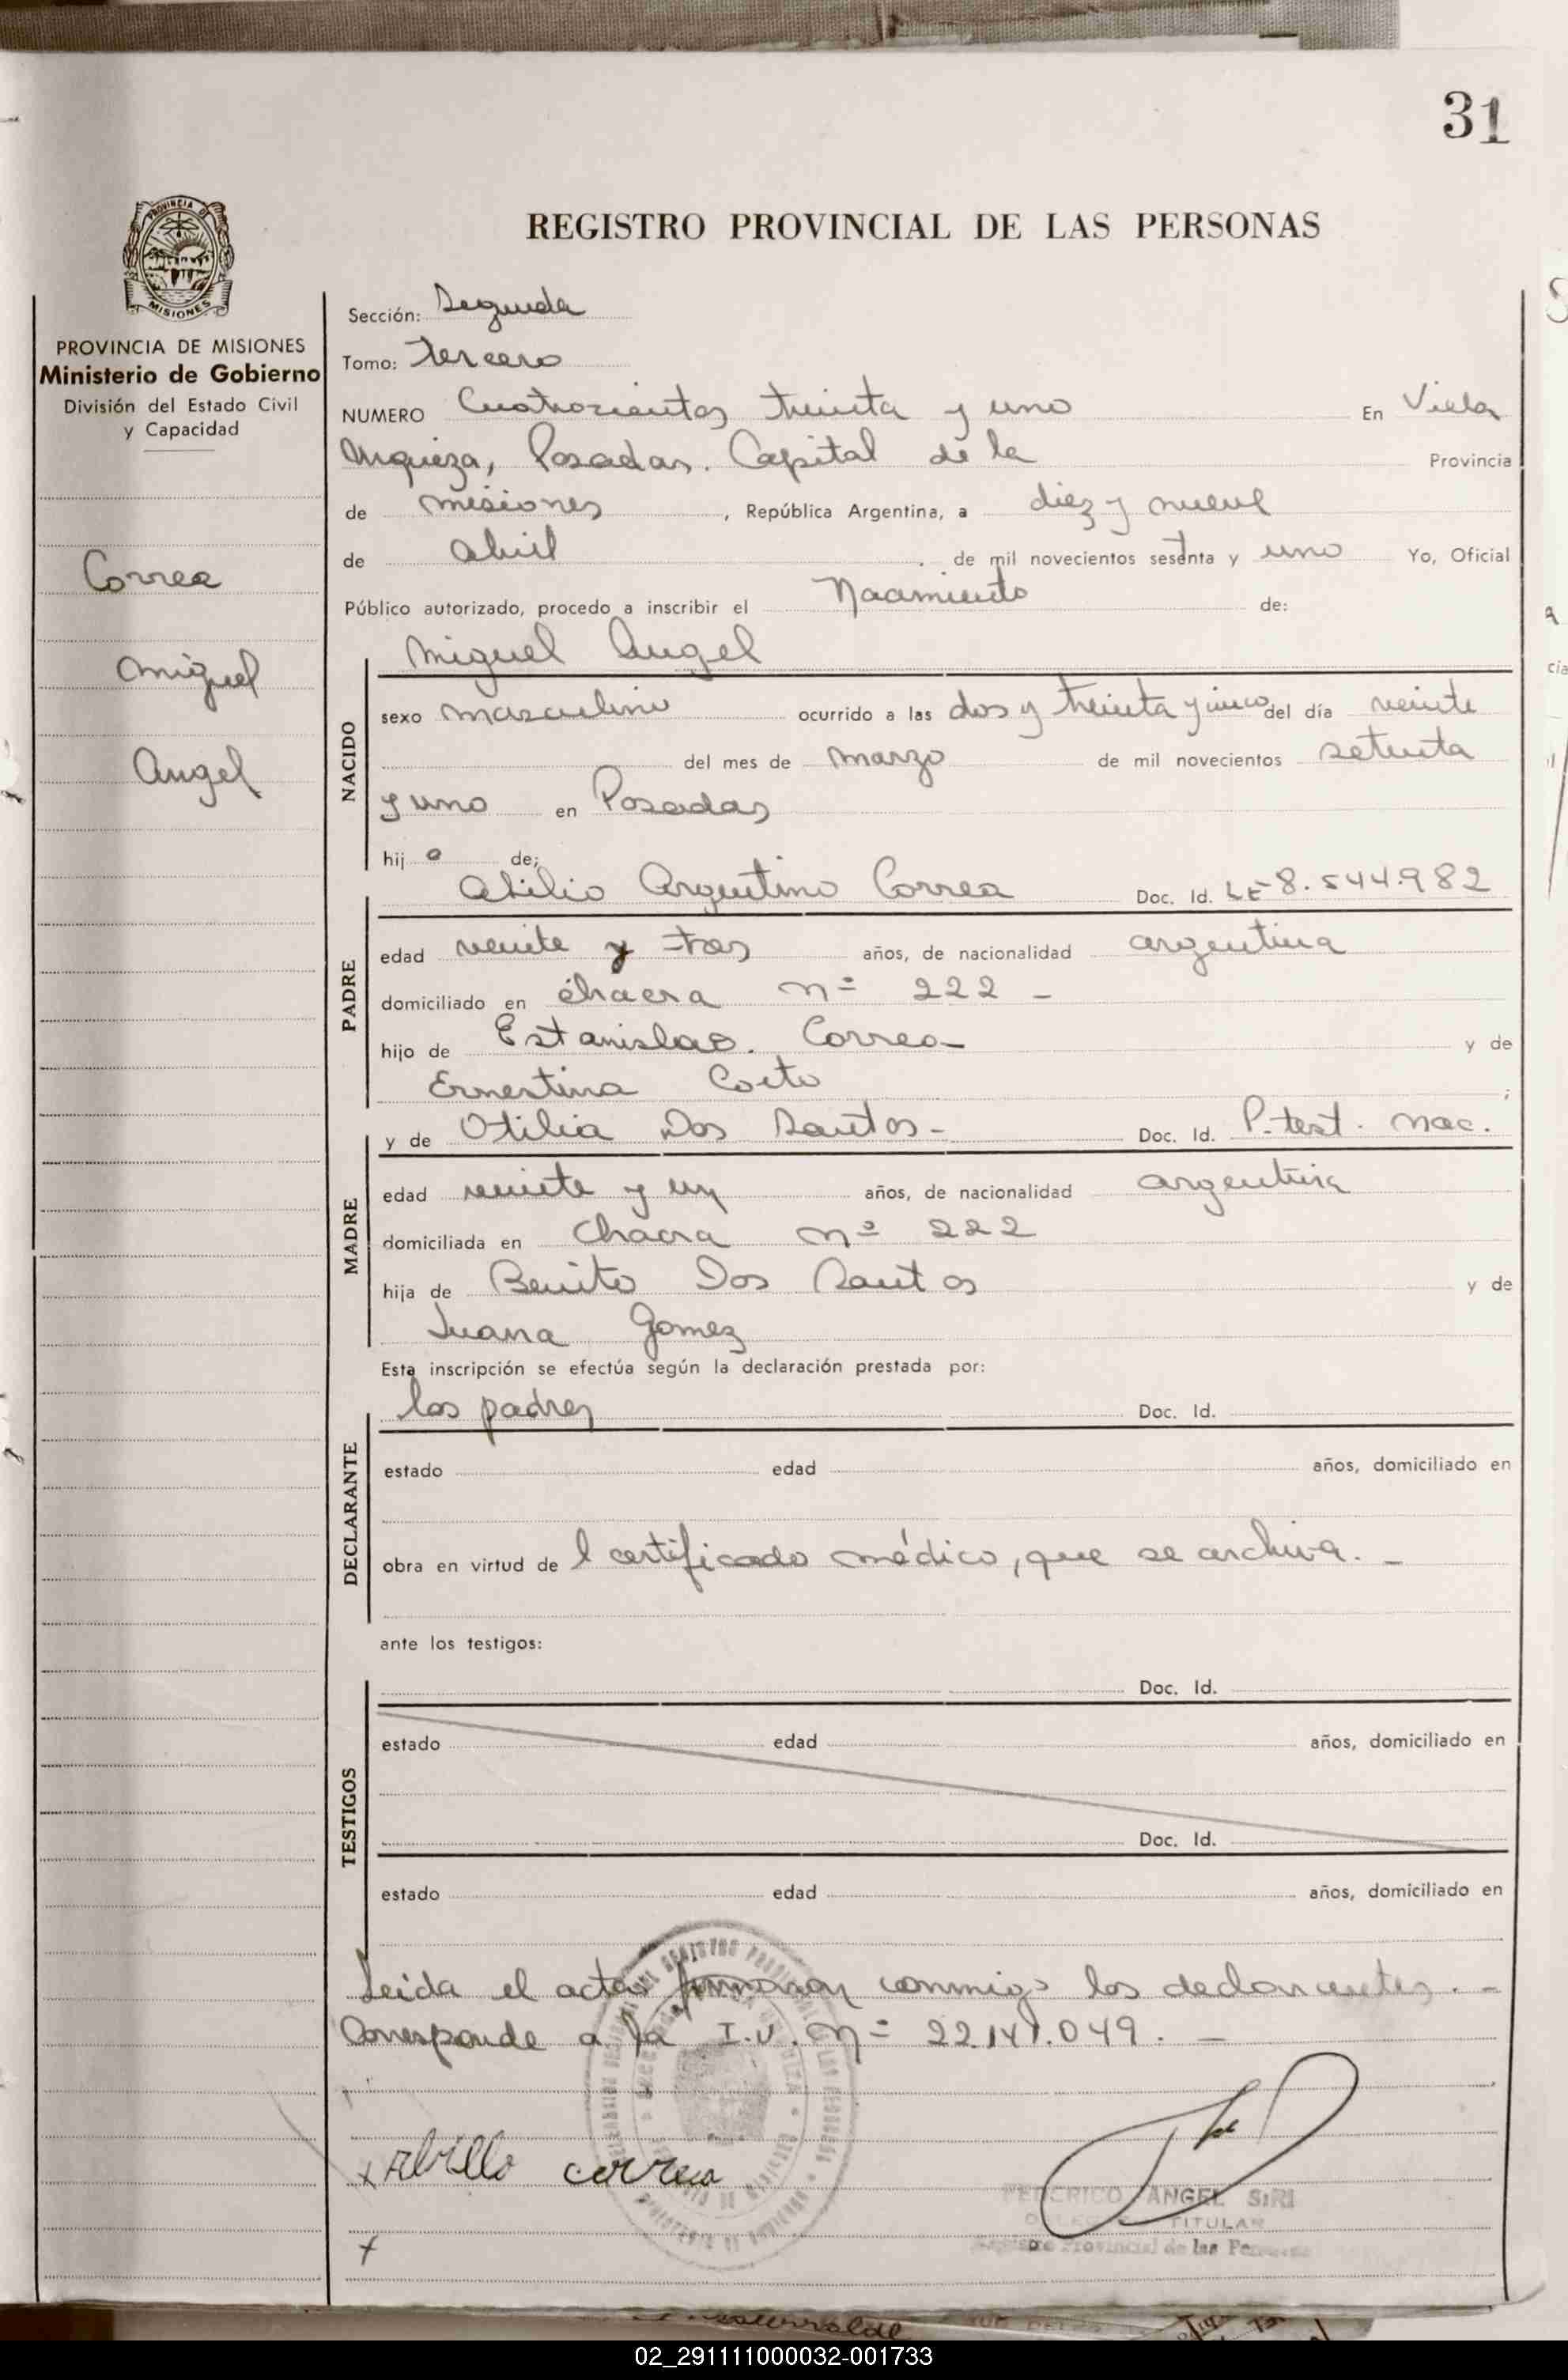 31
PROVINCIA DE
MISIONES
PROVINCIA DE MISIONES
Ministerio de Gobierno
División del Estado Civil
y Capacidad
Correa
Miguel
Angel
REGISTRO PROVINCIAL DE LAS PERSONAS
Sección: Segunda
Tomo: Tercero
NUMERO Cuatrocientos treinta y uno En Villa
Urquiza, Posadas. Capital de la Provincia
de Misiones, República Argentina, a diez y nueve
de abril de mil novecientos sesenta y uno Yo, Oficial
Público autorizado, procedo a inscribir el Nacimiento de:
Miguel Angel
NACIDO
sexo masculino ocurrido a las dos y treinta y cinco del día veinte
del mes de marzo de mil novecientos setenta
y uno en Posadas
hijo de;
PADRE
Atilio Argentino Correa Doc. Id. LE 8.544.982
edad veinte y tres años, de nacionalidad argentina
domiciliado en chacra nº 222 -
hijo de Estanislao. Correa y de
Ernestina Coito ;
MADRE
y de Otilia Dos Santos - Doc. Id. P. test. nac.
edad veinte y un años, de nacionalidad argentina
domiciliada en Chacra nº 222
hija de Benito Dos Santos y de
Juana Gomez
Esta inscripción se efectúa según la declaración prestada por:
DECLARANTE
los padres Doc. Id.
estado edad años, domiciliado en
obra en virtud de l certificado médico, que se archiva. -
ante los testigos:
TESTIGOS
Doc. Id.
estado edad años, domiciliado en
Doc. Id.
estado edad años, domiciliado en
Leida el acta firman conmigo los declarantes. -
Corresponde a la I.U. Nº 22.141.049. -
x correa
x
FEDERICO ANGEL SIRI
TITULAR
Registro Provincial de las Personas
02_291111000032-001733